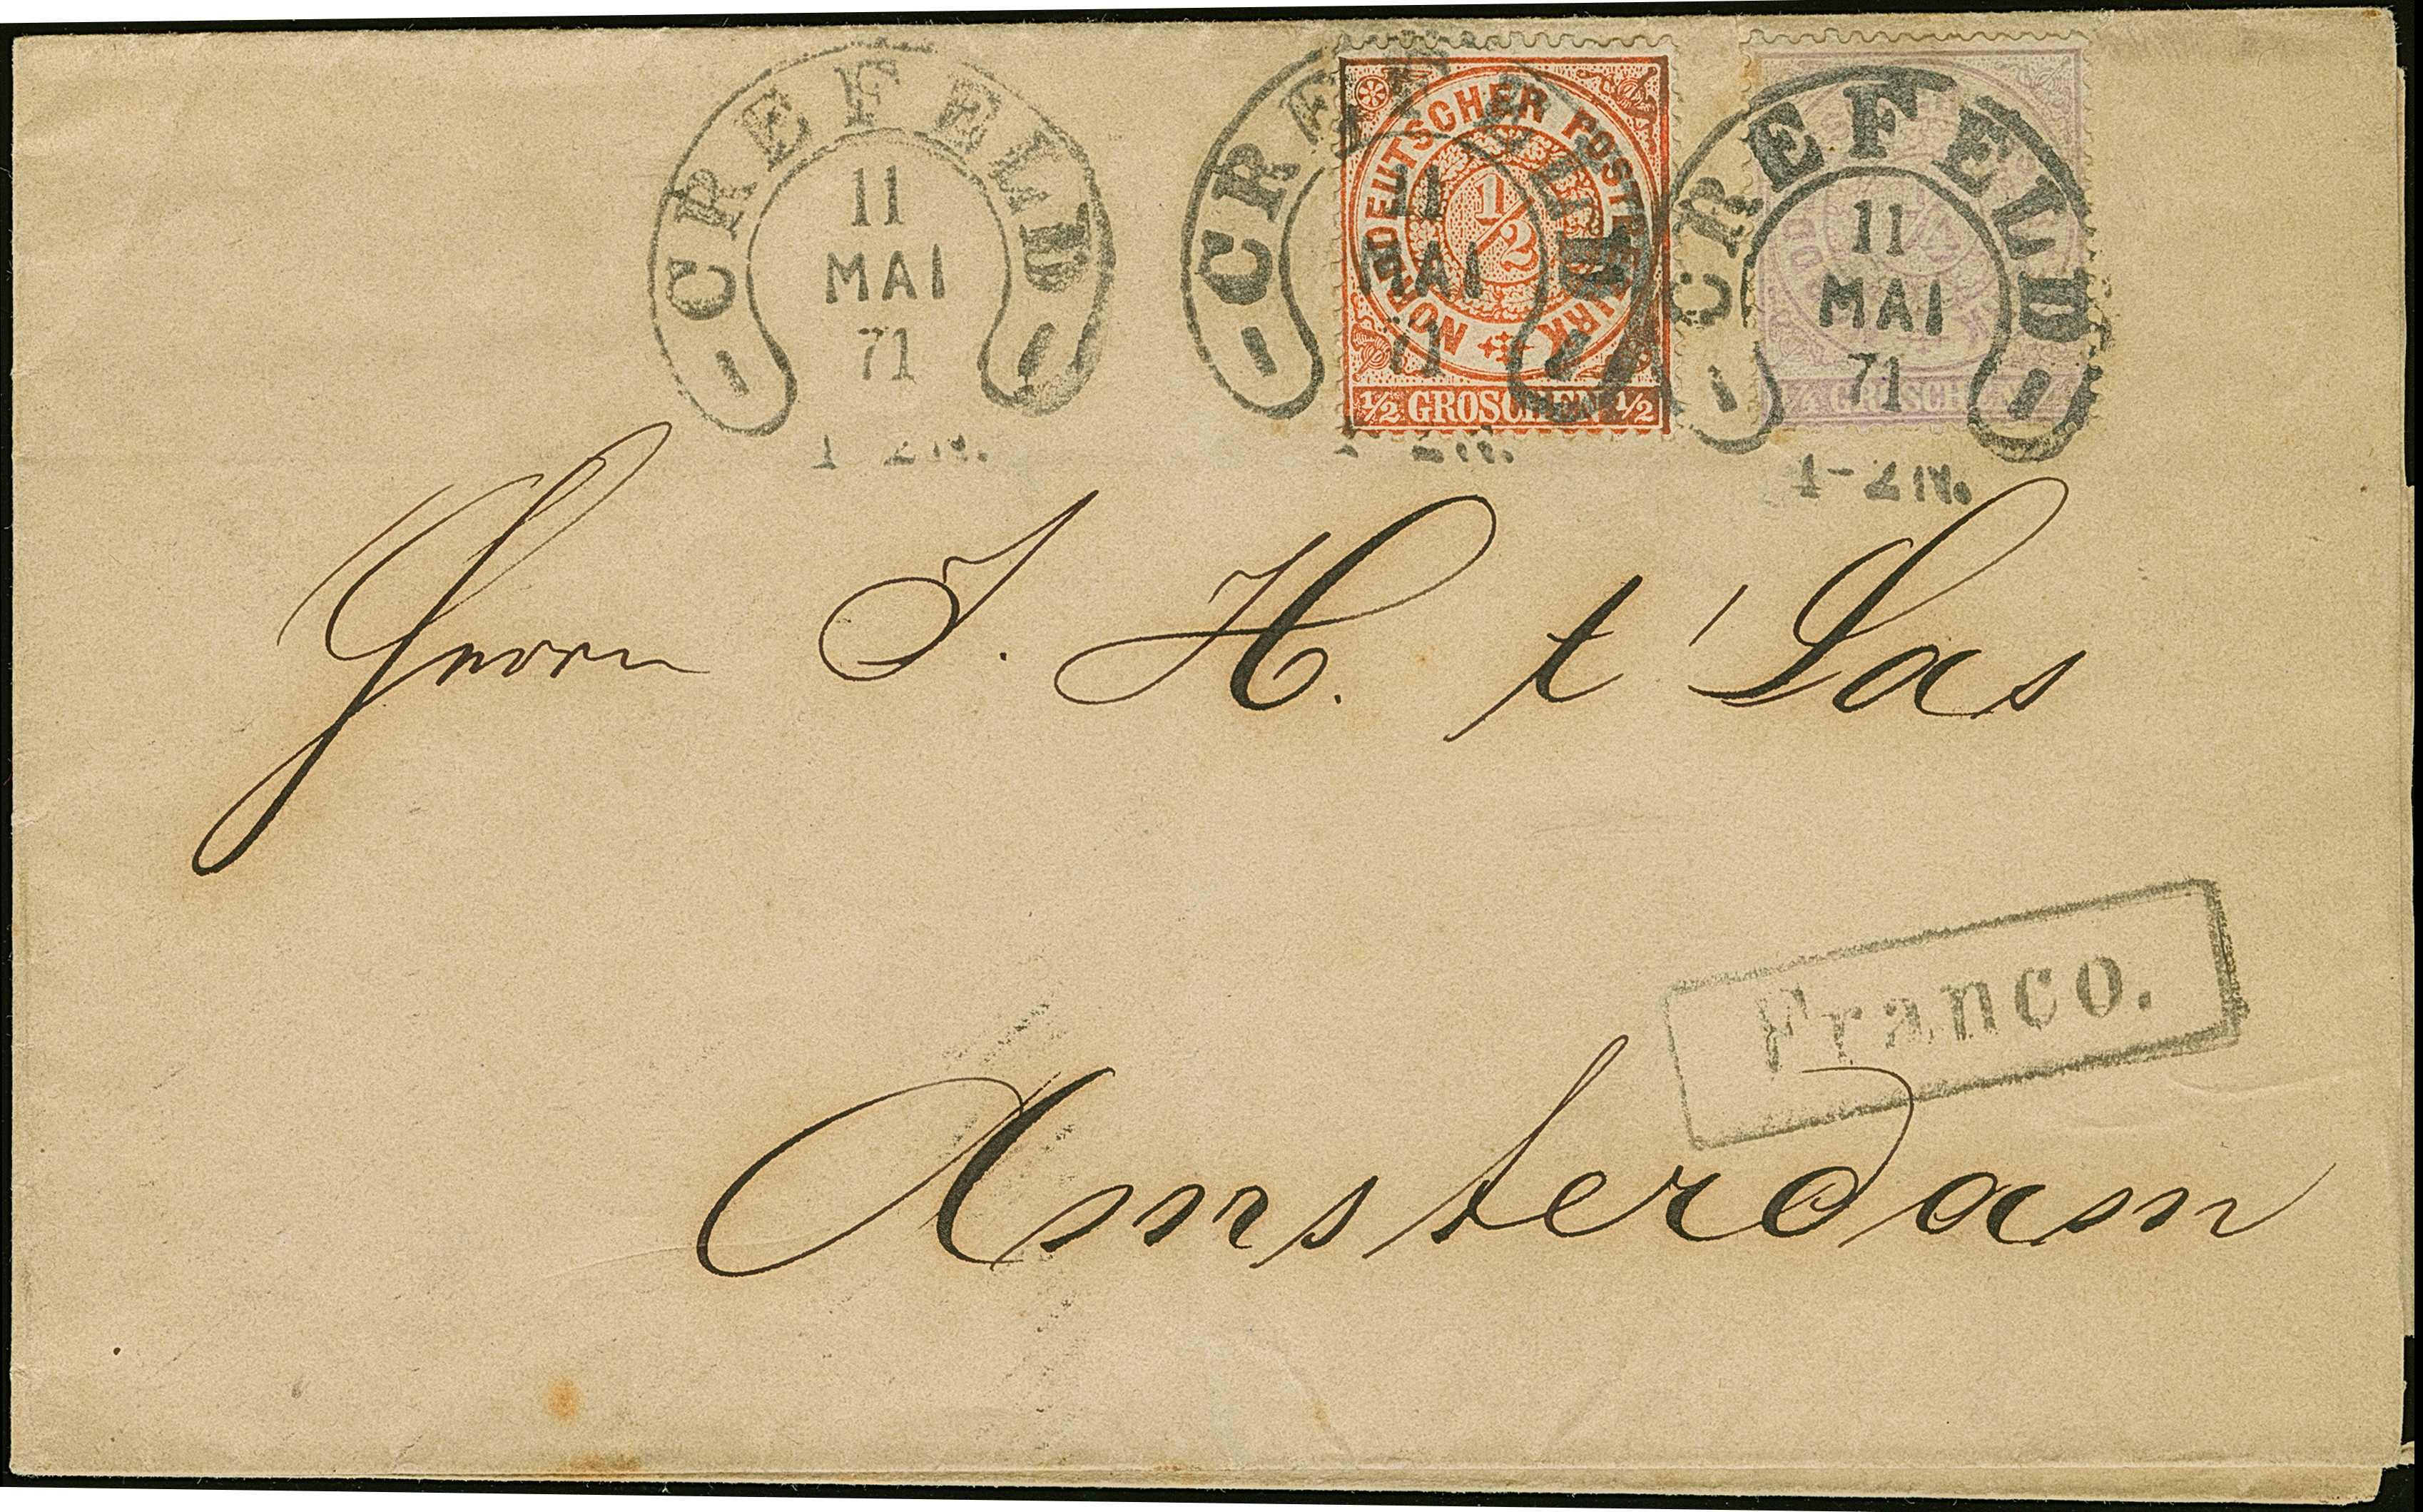 CREFELD
11
MAI
71
CREFELD
11
MAI
71
NORDDEUTSCHER POSTBEZIRK
1/2
1/2 GROSCHEN 1/2
CREFELD
11
MAI
71
1-2N.
1/4 GROSCHEN 1/4
Herrn J. H. t' Las
Franco.
Amsterdam